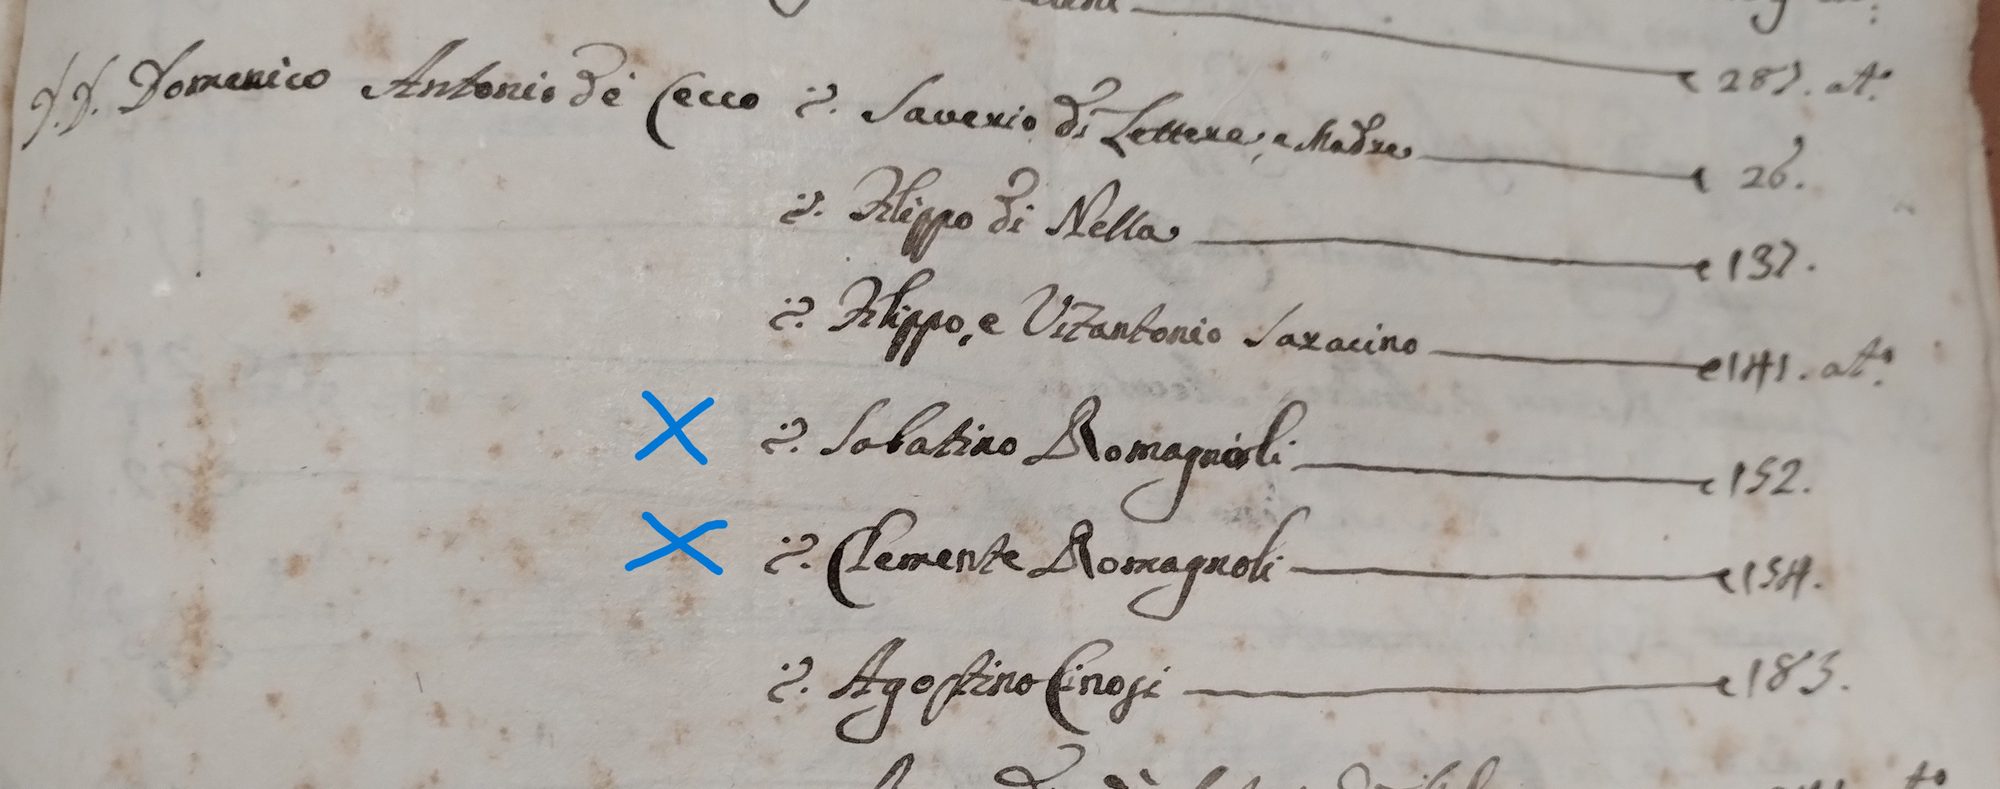 281. at.º
Domenico Antonio de Cecco e. Saverio di Lettere, e Madre 26.
e. Filippo di Nella 137.
e. Filippo, e Vitantonio Saracino 141. at.º
e. Sabatino Romagnoli 152.
e. Clemente Romagnoli 154.
e. Agostino Cinosi 183.